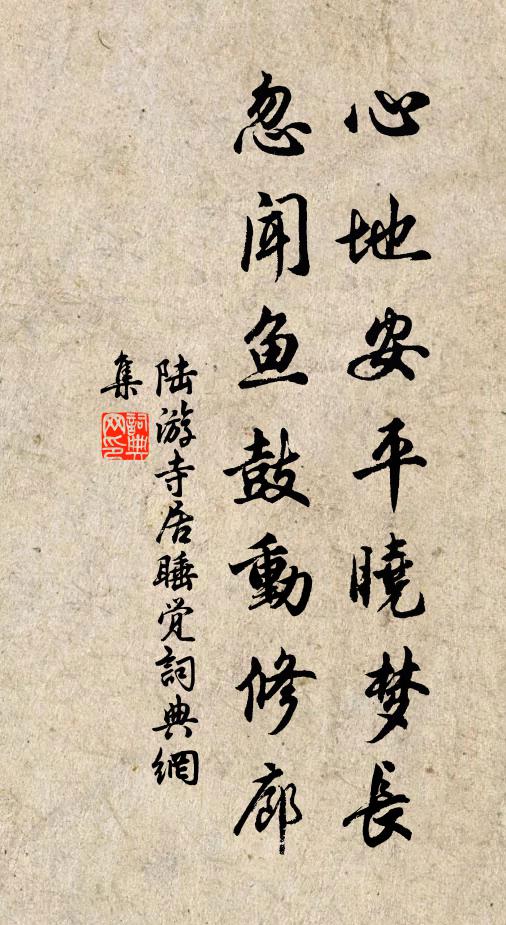 心地安平曉梦長
忽闻鱼鼓動修廊
陆游寺居睡觉詞典網
集
詞典网印